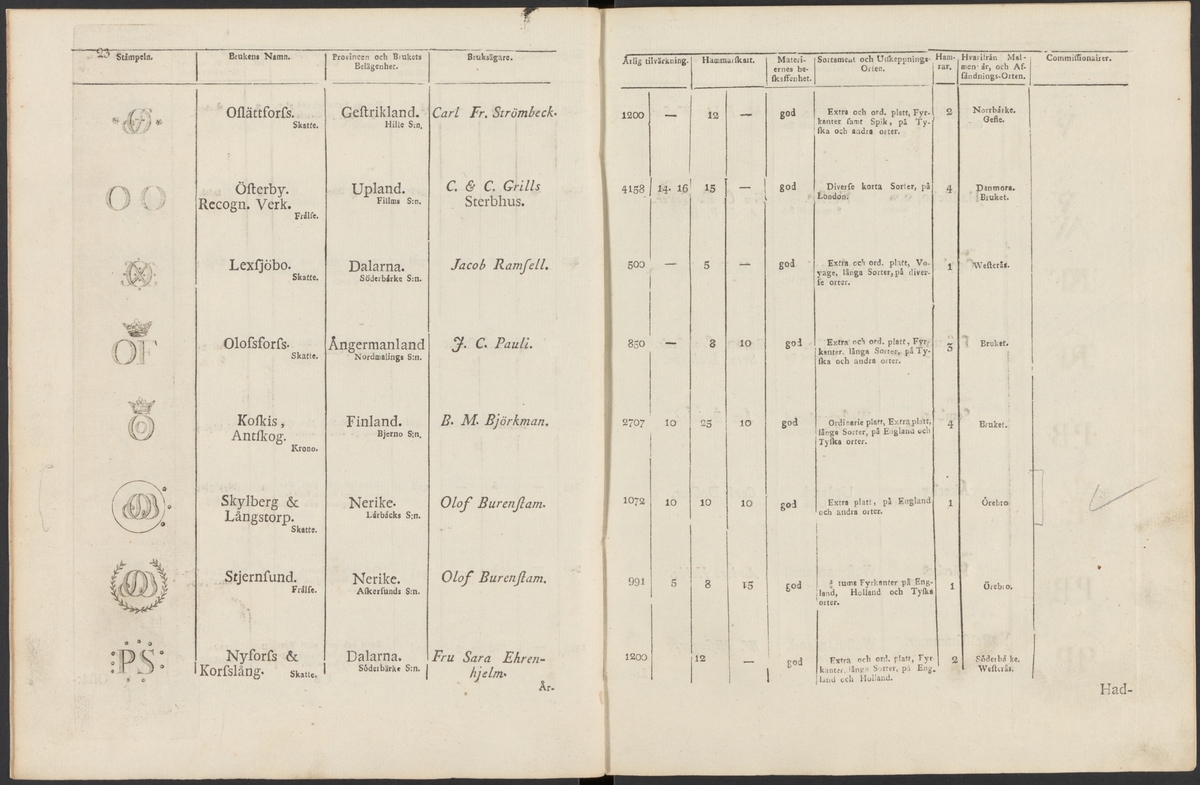 23 Stämpeln. Brukens Namn. Provincen och Brukets Bruksägare.
Belägenhet.
Oſlättforſs. Geſtrikland. Carl Fr. Strömbeck.
Skatte. Hille S:n.
O O Öſterby. Upland. C. & C. Grills
Recogn. Verk. Fillms S:n. Sterbhus.
Frälſe.
Lexſjöbo. Dalarna. Jacob Ramſell.
Skatte. Söderbärke S:n.
OF Olofsforſs. Ångermanland J. C. Pauli.
Skatte. Nordmalings S:n.
O Koſkis, Finland. B. M. Björkman.
Antſkog. Bjerno S:n.
Krono.
Skylberg & Nerike. Olof Burenſtam.
Långstorp. Lärbäcks S:n.
Skatte.
Stjernſund. Nerike. Olof Burenſtam.
Frälſe. Aſkerſunds S:n.
PS Nyforſs & Dalarna. Fru Sara Ehren-
Korſslång. Skatte. Söderbärke S:n. hjelm.
År-
Årlig tilvärkning. Hammarſkatt. Materi- Sortement och Utſkeppnings- Ham- Hvarifrån Mal- Commiſſionairer.
ernes be- Orten. rar. men är, och Af-
ſkaffenhet. ſändnings-Orten.
1200 — 12 — god Extra och ord. platt, Fyr- 2 Norrbärke.
kanter ſamt Spik, på Ty- Gefle.
ſka och andra orter.
4158 14. 16 15 — god Diverſe korta Sorter, på 4 Danmora.
London. Bruket.
500 — 5 — god Extra och ord. platt, Vo- 1 Weſterås.
yage, långa Sorter, på diver-
ſe orter.
850 — 8 10 god Extra och ord. platt, Fyr- 3 Bruket.
kanter. långa Sorter, på Ty-
ſka och andra orter.
2707 10 25 10 god Ordinarie platt, Extra platt, 4 Bruket.
långa Sorter, på England och
Tyſka orter.
1072 10 10 10 god Extra platt, på England 1 Örebro
och andra orter.
991 5 8 15 god tums Fyrkanter på Eng- 1 Örebro.
land, Holland och Tyſka
orter.
1200 12 — god Extra och ord. platt, Fyr 2 Söderbä ke.
kanter, långa Sorter, på Eng. Weſterås.
land och Holland.
Had-